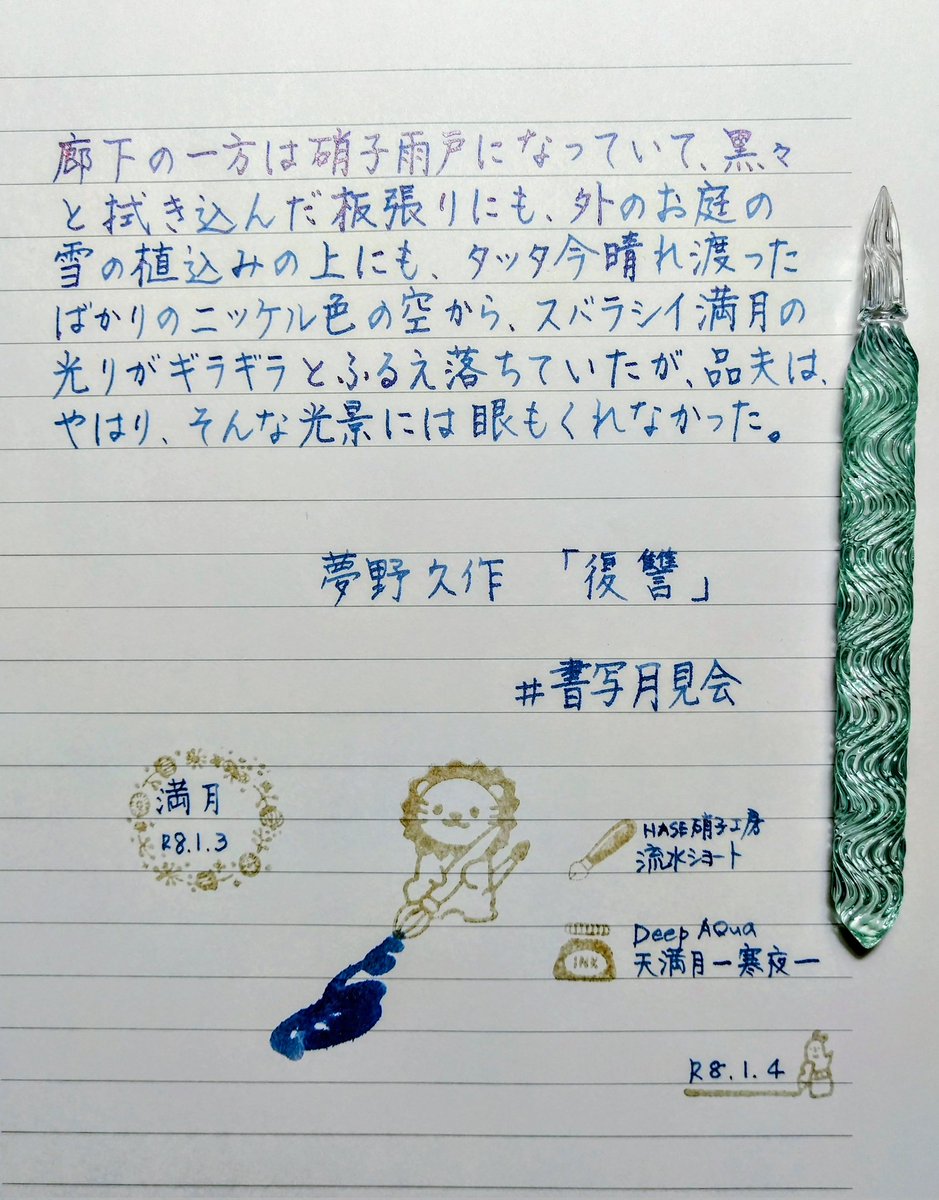 廊下の一方は硝子雨戸になっていて、黒々
と拭き込んだ板張りにも、外のお庭の
雪の植込みの上にも、タッタ今晴れ渡った
ばかりのニッケル色の空から、スバラシイ満月の
光りがギラギラとふるえ落ちていたが、品夫は、
やはり、そんな光景には眼もくれなかった。
夢野久作 「復讐」
#書写月見会
満月
R8.1.3
HASE硝子工房
流水ショート
INK
Deep AQua
天満月ー寒夜ー
R8.1.4